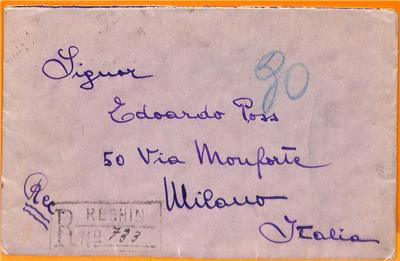 Signor
90
Edoardo Poss
50 Via Monforte
Milano
Italia
Rec
R RESHIN
No 733